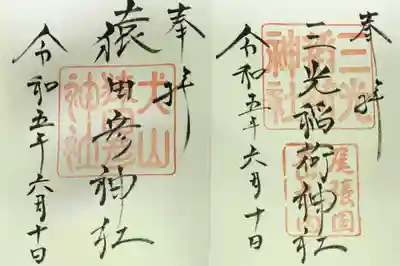 奉拝
猿田彦神社
令和五年六月十日
犬山
猿田彦
神社
奉拝
三光稲荷神社
令和五年六月十日
三光
稲荷
神社
尾張国